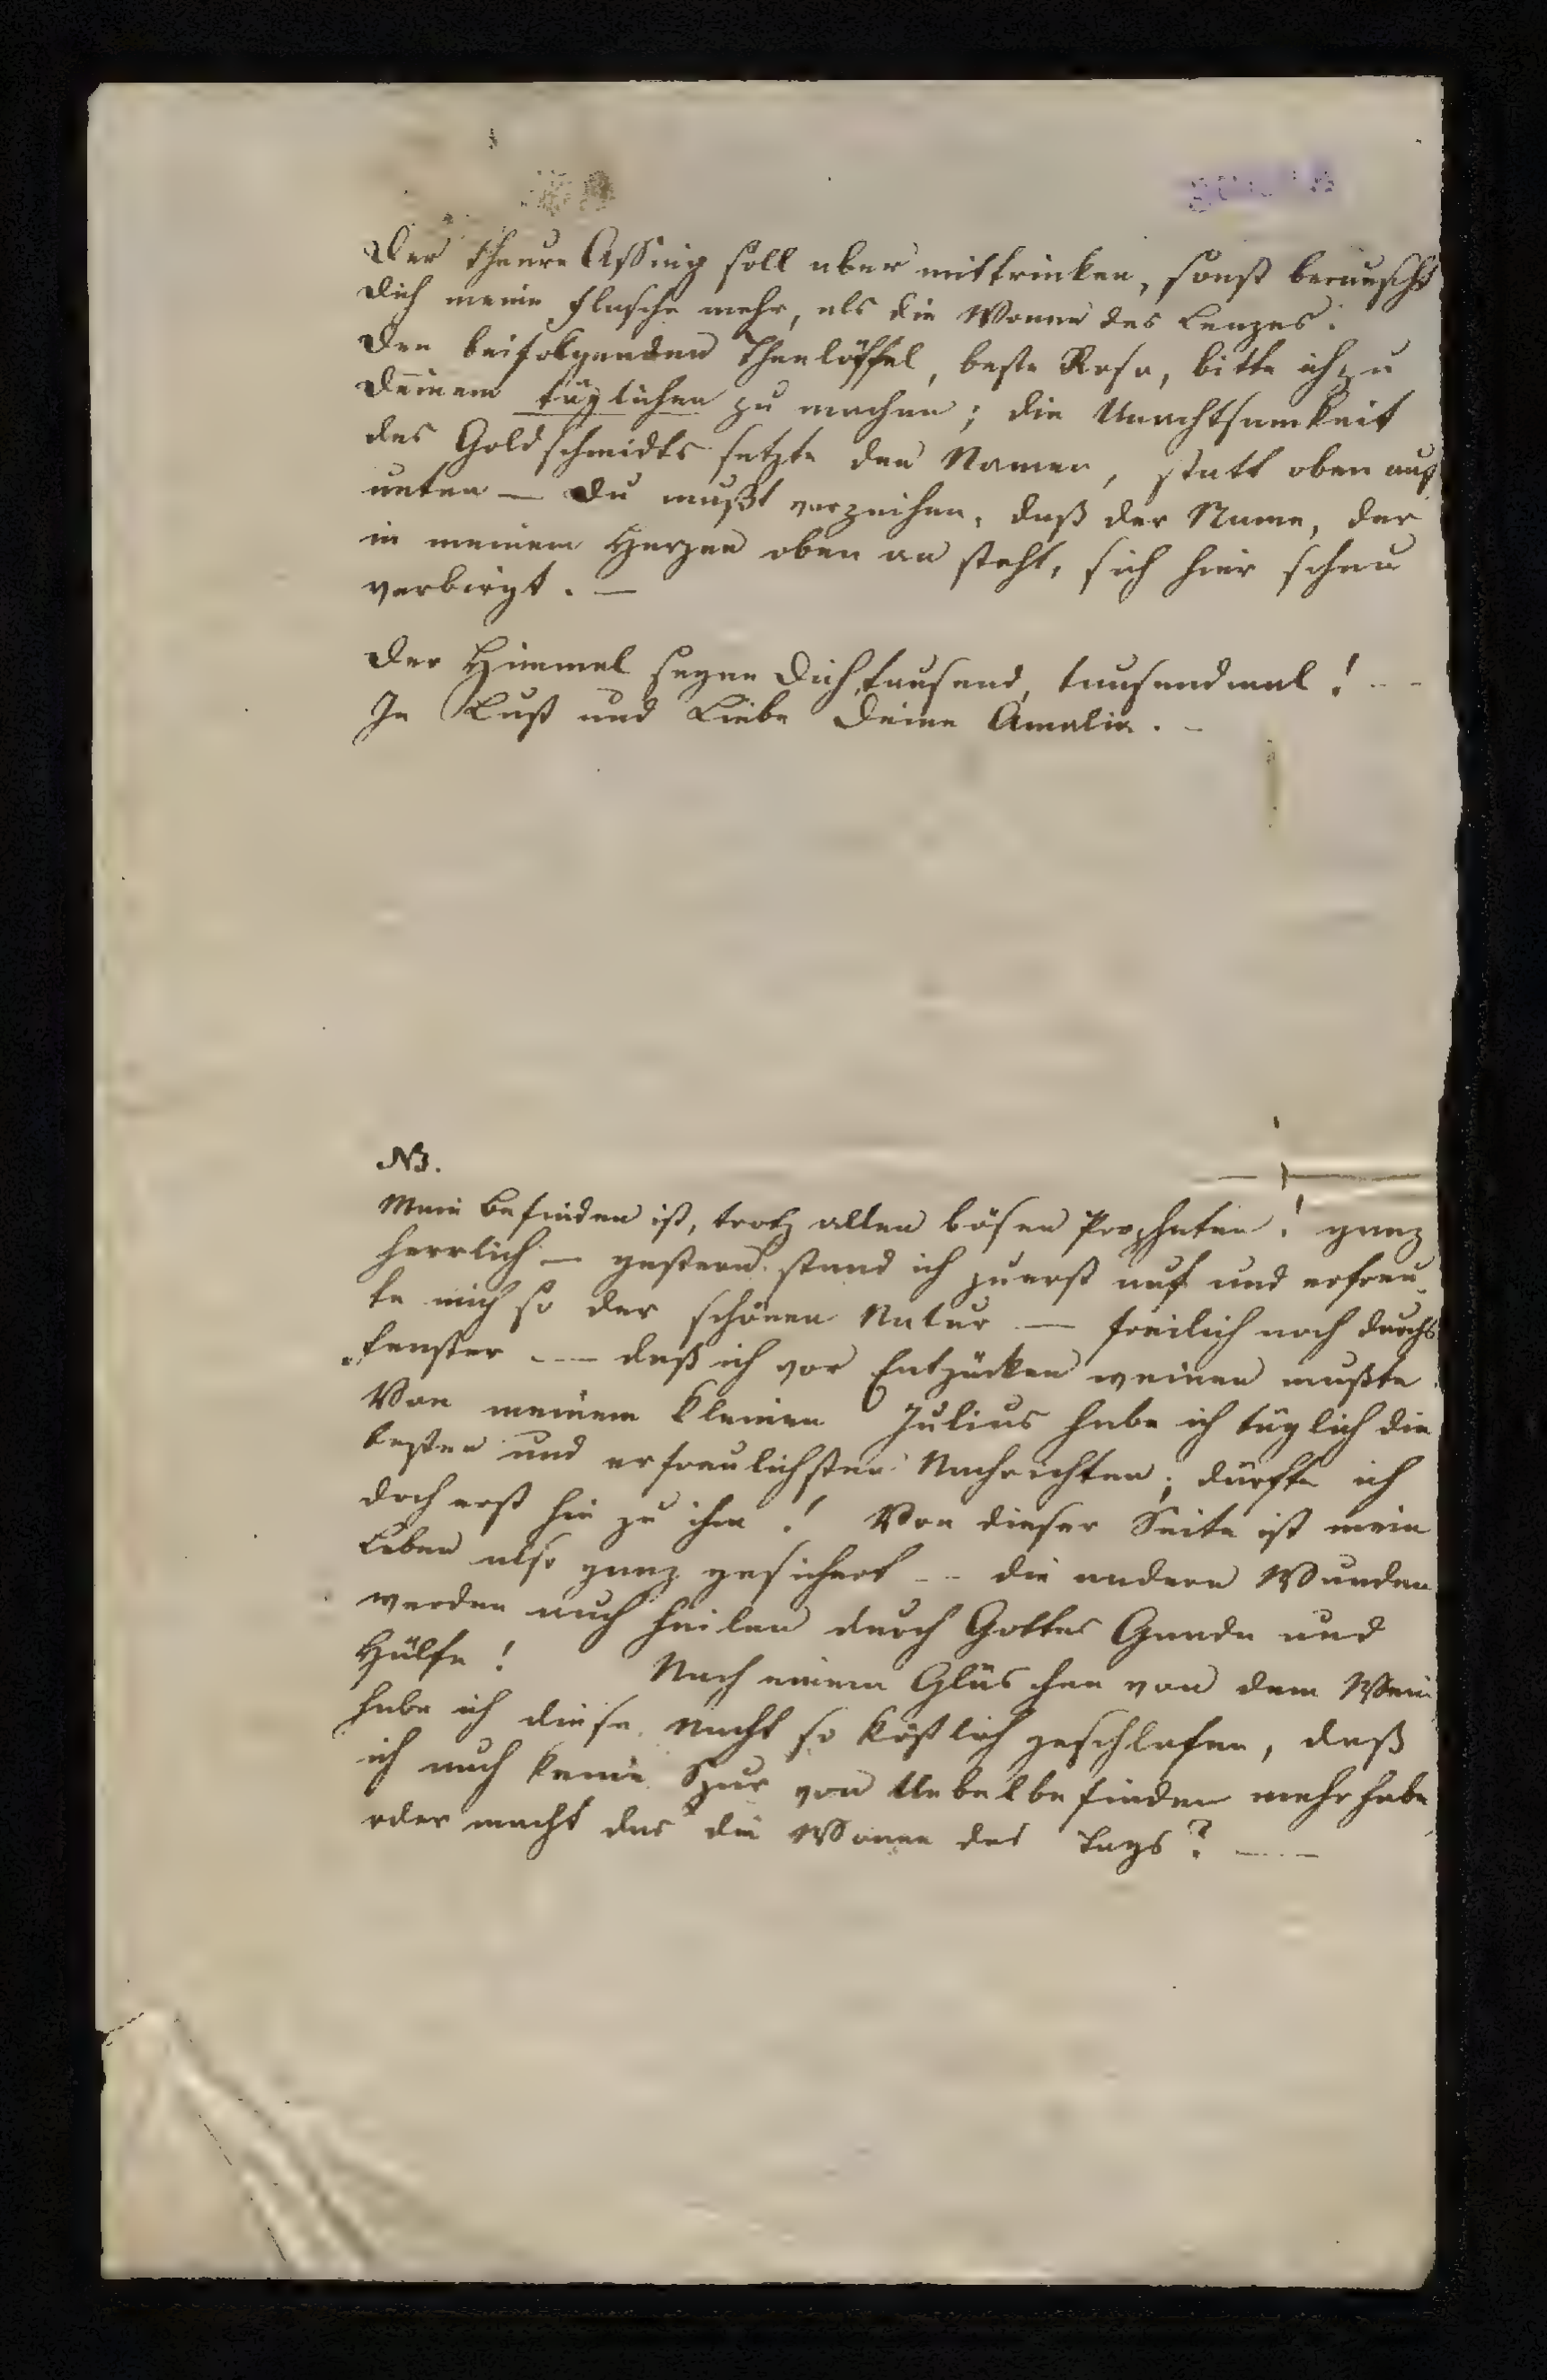 Der theure Assing soll aber mittrinken, sonst berauscht
Dich meine Flasche mehr, als die Wonne des Lenzes.
Den beifolgenden Theelöffel, beste Rosa, bitte ich zu
Deinem täglichen zu machen; die Unachtsamkeit
des Goldschmidts setzte den Namen, statt oben auf
unten — Du mußt verzeihen, daß der Name, der
in meinem Herzen oben an steht, sich hier scheu
verbirgt. —
Der Himmel segne Dich, tausend, tausendmal! --
In Lust und Liebe Deine Amalia. -
NB.
Mein Befinden ist, trotz allen bösen Propheten! ganz
herrlich — gestern stand ich zuerst auf und erfreu-
te mich so der schönen Natur — freilich noch durchs
Fenster --- daß ich vor Entzücken weinen mußte.
Von meinem kleinen Julius habe ich täglich die
besten und erfreulichsten Nachrichten; dürfte ich
doch erst hin zu ihm! Von dieser Seite ist mein
Leben also ganz gesichert -- die andern Wunden
werden auch heilen durch Gottes Gnade und
Hülfe! Nach einem Gläschen von dem Wein
habe ich diese Nacht so köstlich geschlafen, daß
ich auch keine Spur von Uebelbefinden mehr habe,
oder macht das die Wonne des Tags? ---